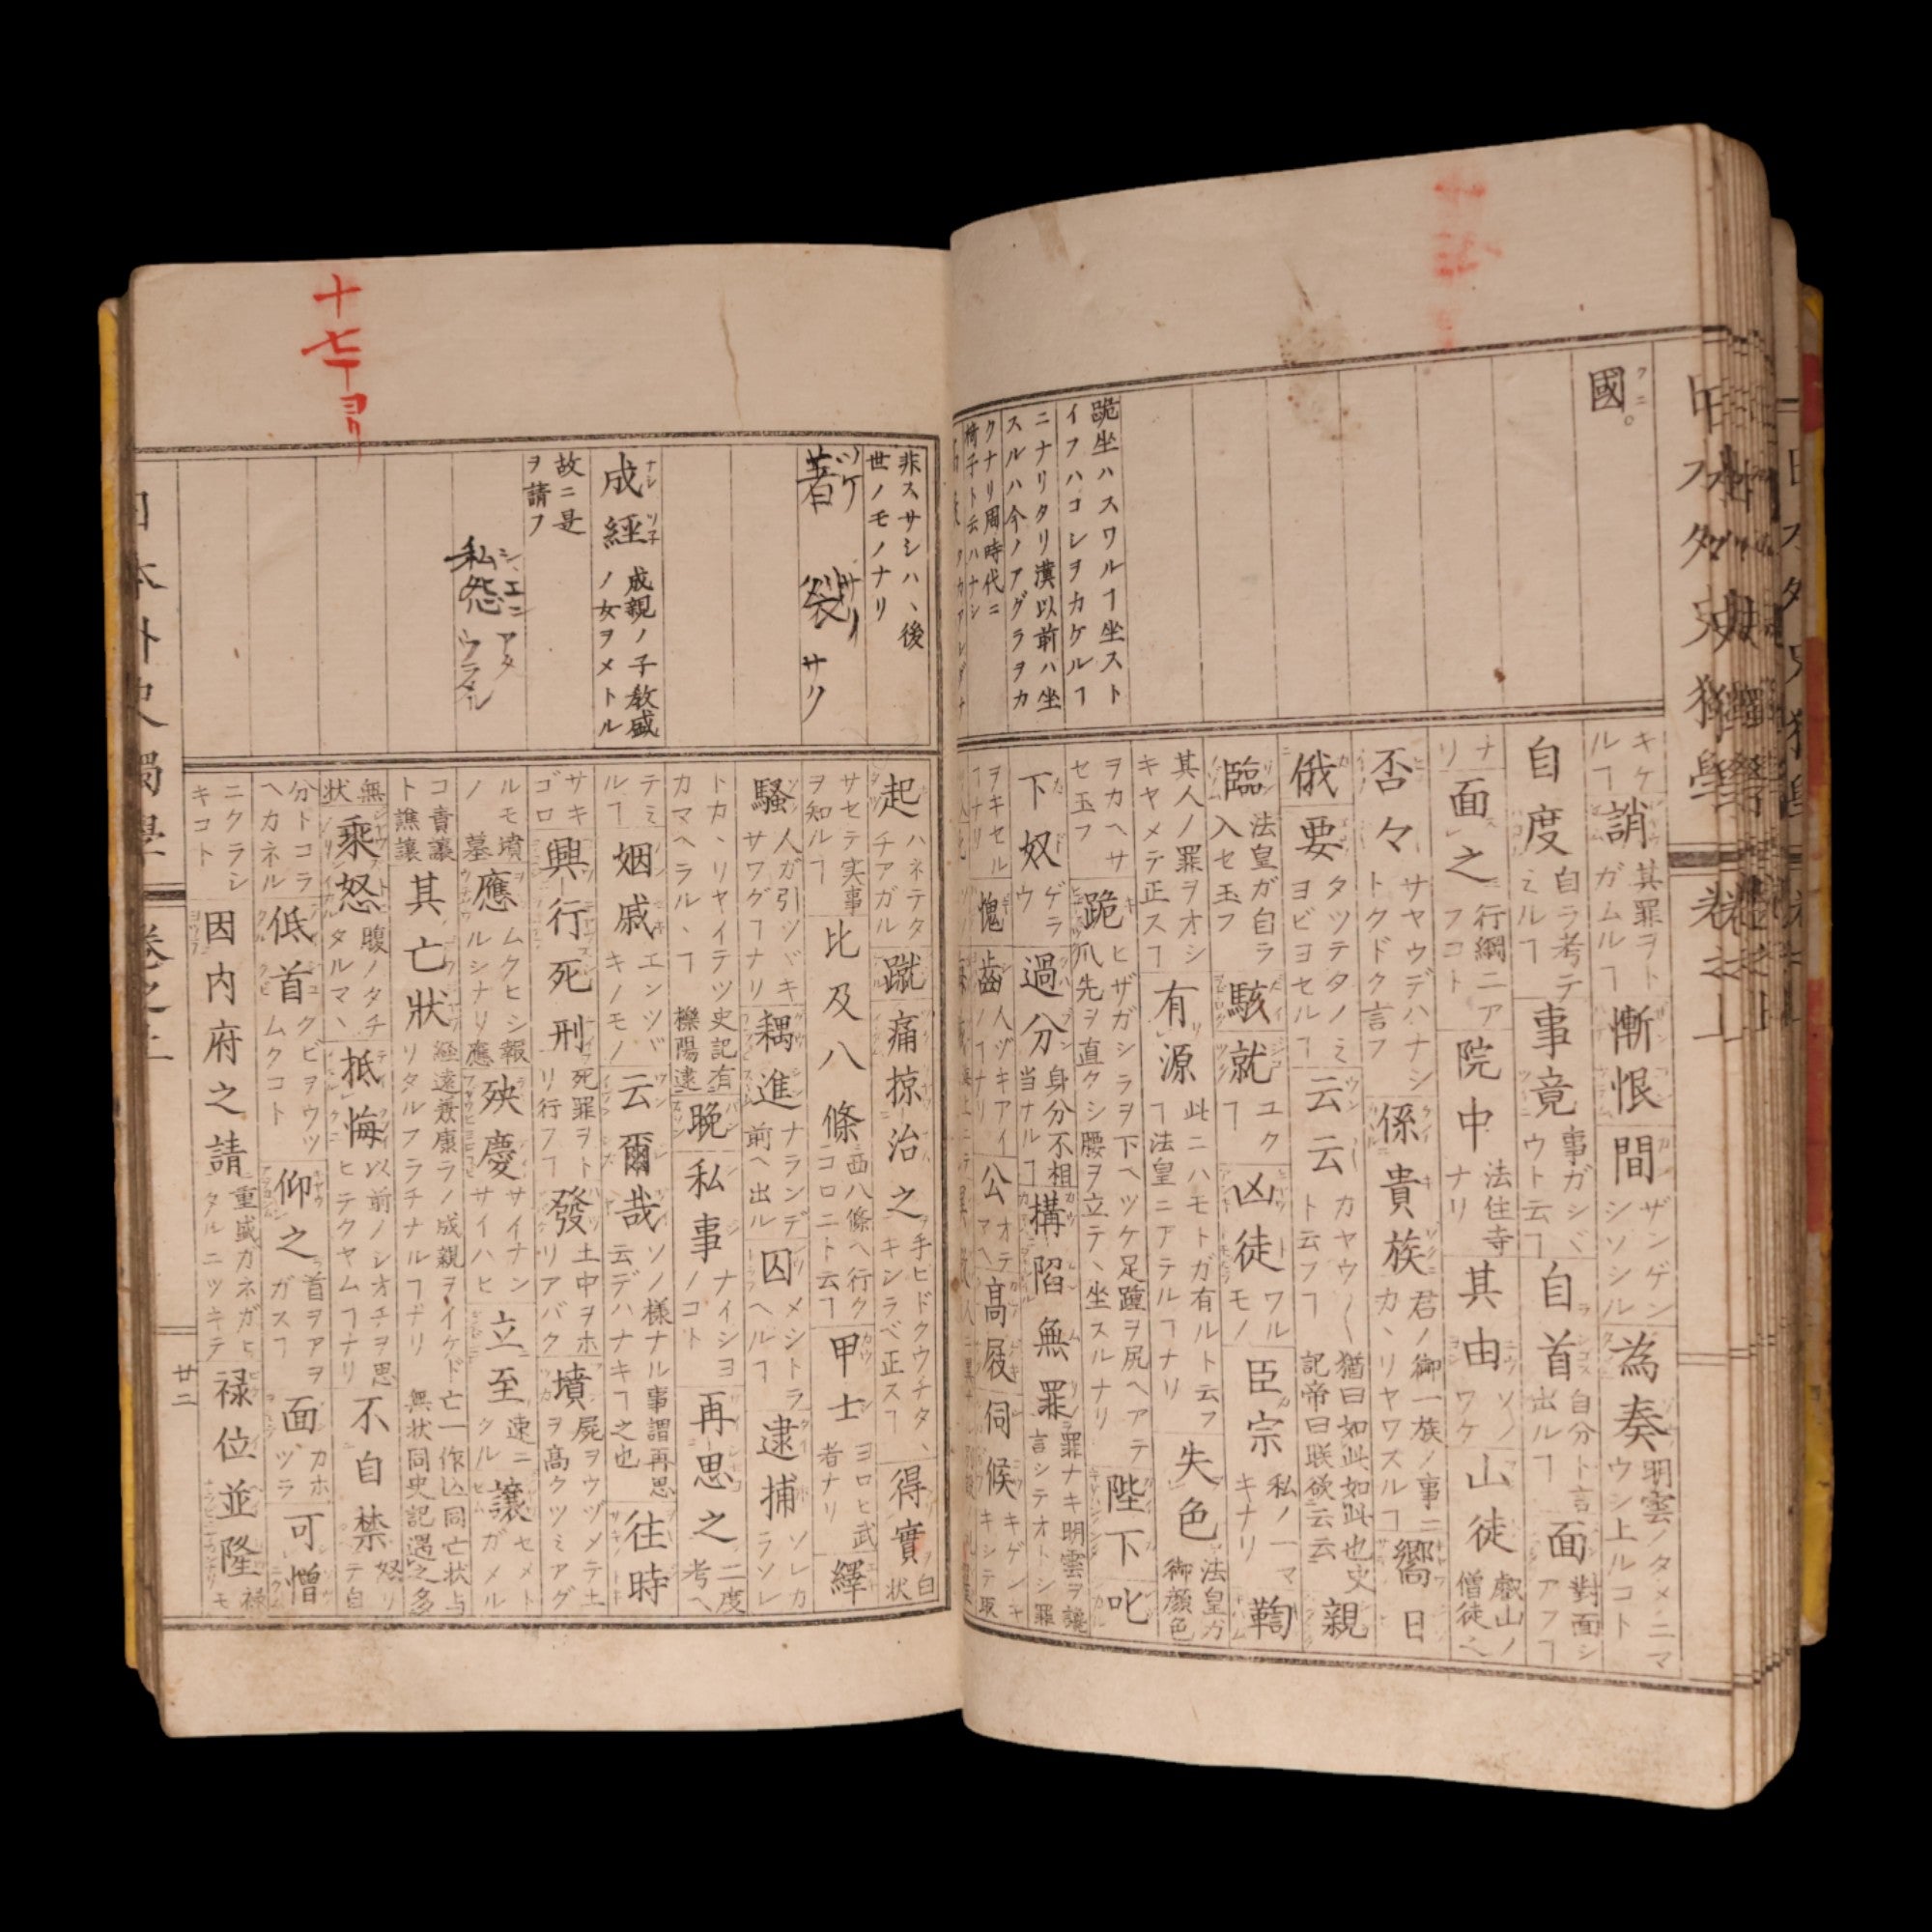 國
跪坐ハスワルヿ坐スト
イフハコシヲカケルヿ
ニナリタリ漢以前ハ坐
スルハ今ノアグラヲカ
クナリ周時代ニ
椅子ト云ハナシ
キケ
ルヿ
誚 其罪ヲト
ガムルヿ
慚恨
間 ザンゲン
シソシル
為奏 明雲ノタメニマ
ウシ上ルコト
自度 自ラ考テ
ミルヿ
事竟 事ガシ
ウト云ヿ
自首 自分ト言
出ルヿ
面 對面シ
アフヿ
ナ
リ
面之 行綱ニア
フコト
院中 法住寺
ナリ
其由 ソノ
ワケ
山徒 叡山ノ
僧徒
否々 サヤウデハナシ
トクドク言フ
係貴族 君ノ御一族ノ事ニ
カヽリヤワスルヿ
嚮日
俄
要 タツテタノミ
ヨビヨセルヿ
云云 カヤウ〳〵
ト云フヿ
猶曰如此如此也史
記帝曰朕欲云云
親
臨 法皇ガ自ラ
入セ玉フ
駭
就 ユク
ヿ
凶徒 ワル
モノ
臣宗 私ノ一マ
キナリ
鞫
其人ノ罪ヲオシ
キヤメテ正スヿ
有源 此ニハモトガ有ルト云フ
ヿ法皇ニアテルヿナリ
失色 法皇ガ
御顔色
ヲカヘサ
セ玉フ
跪 ヒザガシラヲ下ヘツケ足踵ヲ尻ヘアテ
爪先ヲ直クシ腰ヲ立テヽ坐スルナリ
陛下
叱
下奴 ゲラ
ウ
過分 身分不相
当ナルヿ
構陷
無罪 罪ナキ明雲ヲ讒
言シテオトシ罪
ヲキセル
ヿナリ
愧
齒 人ヅキアイ
ノヿナリ
公 オテ
マヘ
高屐
伺候 キゲンキ
キシテ取
日本外史獨學
卷之上
十七丁ヨリ
非スサシハヽ後
世ノモノナリ
著 ツケ
裂 サリ サク
成經 ナレ ツネ
成親ノ子教盛
ノ女ヲメトル
故ニ是
ヲ請フ
私怨 シ エン
アタ
ウラメル
起 ハネテタ
チアガル
蹴
痛掠治之 手ヒドクウチタヽ
キシラベ正スヿ
得實 白
状
サセテ実事
ヲ知ルヿ
比及八條 西八條ヘ行ク
コロニト云ヿ
甲士 ヨロヒ武
者ナリ
繹
騷 人ガ引ツヾキ
サワグヿナリ
耦進 ナランデ
前ヘ出ル
囚 メシトラ
ヘルヿ
逮捕 ソレカ
ラソレ
トカヽリヤイテツ
カマヘラルヽヿ
史記有
櫟陽逮
晚
私事 ナイシヨ
ノコト
再思之 二度
考ヘ
テミ
ルヿ
姻戚 エンツヾ
キノモノ
云爾哉 ソノ様ナル事謂再思
云デハナキヿ之也
往時
サキ
ゴロ
興
行死刑 死罪ヲト
リ行フヿ
發 土中ヲホ
リアバク
墳 屍ヲウヅメテ土
ヲ高クツミアグ
ルモ墳
ノ 墓
應 ムクヒシ報
ルシナリ應
殃慶 サイナン
サイハヒ
立至 速ニ
クル
讓 セメト
ガメル
コ責讓
ト譙讓
其亡狀 經遠兼康ラノ成親ヲイケド
リタルフラチナルヿナリ
亡一作亾同亡状与
無状同史記遇之多
無
状
乘怒 腹ノタチ
タルマヽ
抵悔 以前ノシオチヲ思
ヒテクヤムヿナリ
不自禁 怒リ
テ自
分トコラ
ヘカネル
低首 クビヲウツ
ムクコト
仰之 首ヲアヲ
ガスヿ
面 カホ
ヅラ
可憎
ニクラシ
キコト
因内府之請 重盛ガネガヒ
タルニツキテ
禄位並隆 禄
モ
廿二